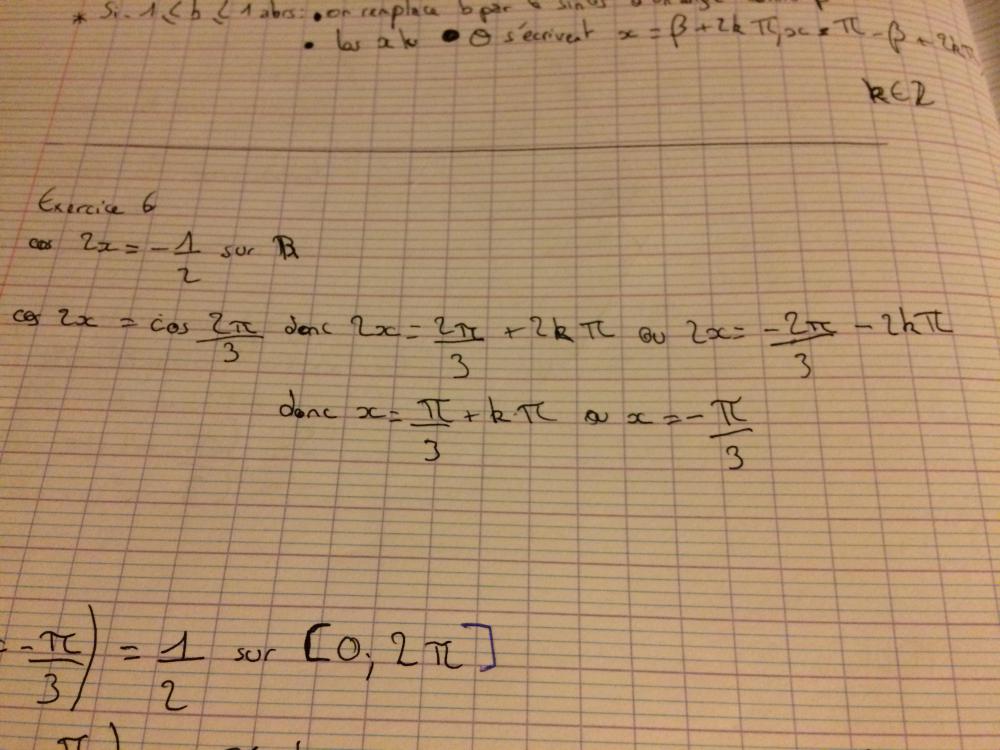 * Si -1 ≤ b ≤ 1 alors: • on remplace b par
• les s'écrivent x = β + 2kπ, x = π - β + 2kπ
k ∈ Z
Exercice 6
cos 2x = -1/2 sur R
cos 2x = cos 2π/3 donc 2x = 2π/3 + 2kπ ou 2x = -2π/3 - 2kπ
donc x = π/3 + kπ ou x = -π/3
-π/3) = 1/2 sur [0; 2π]
π)